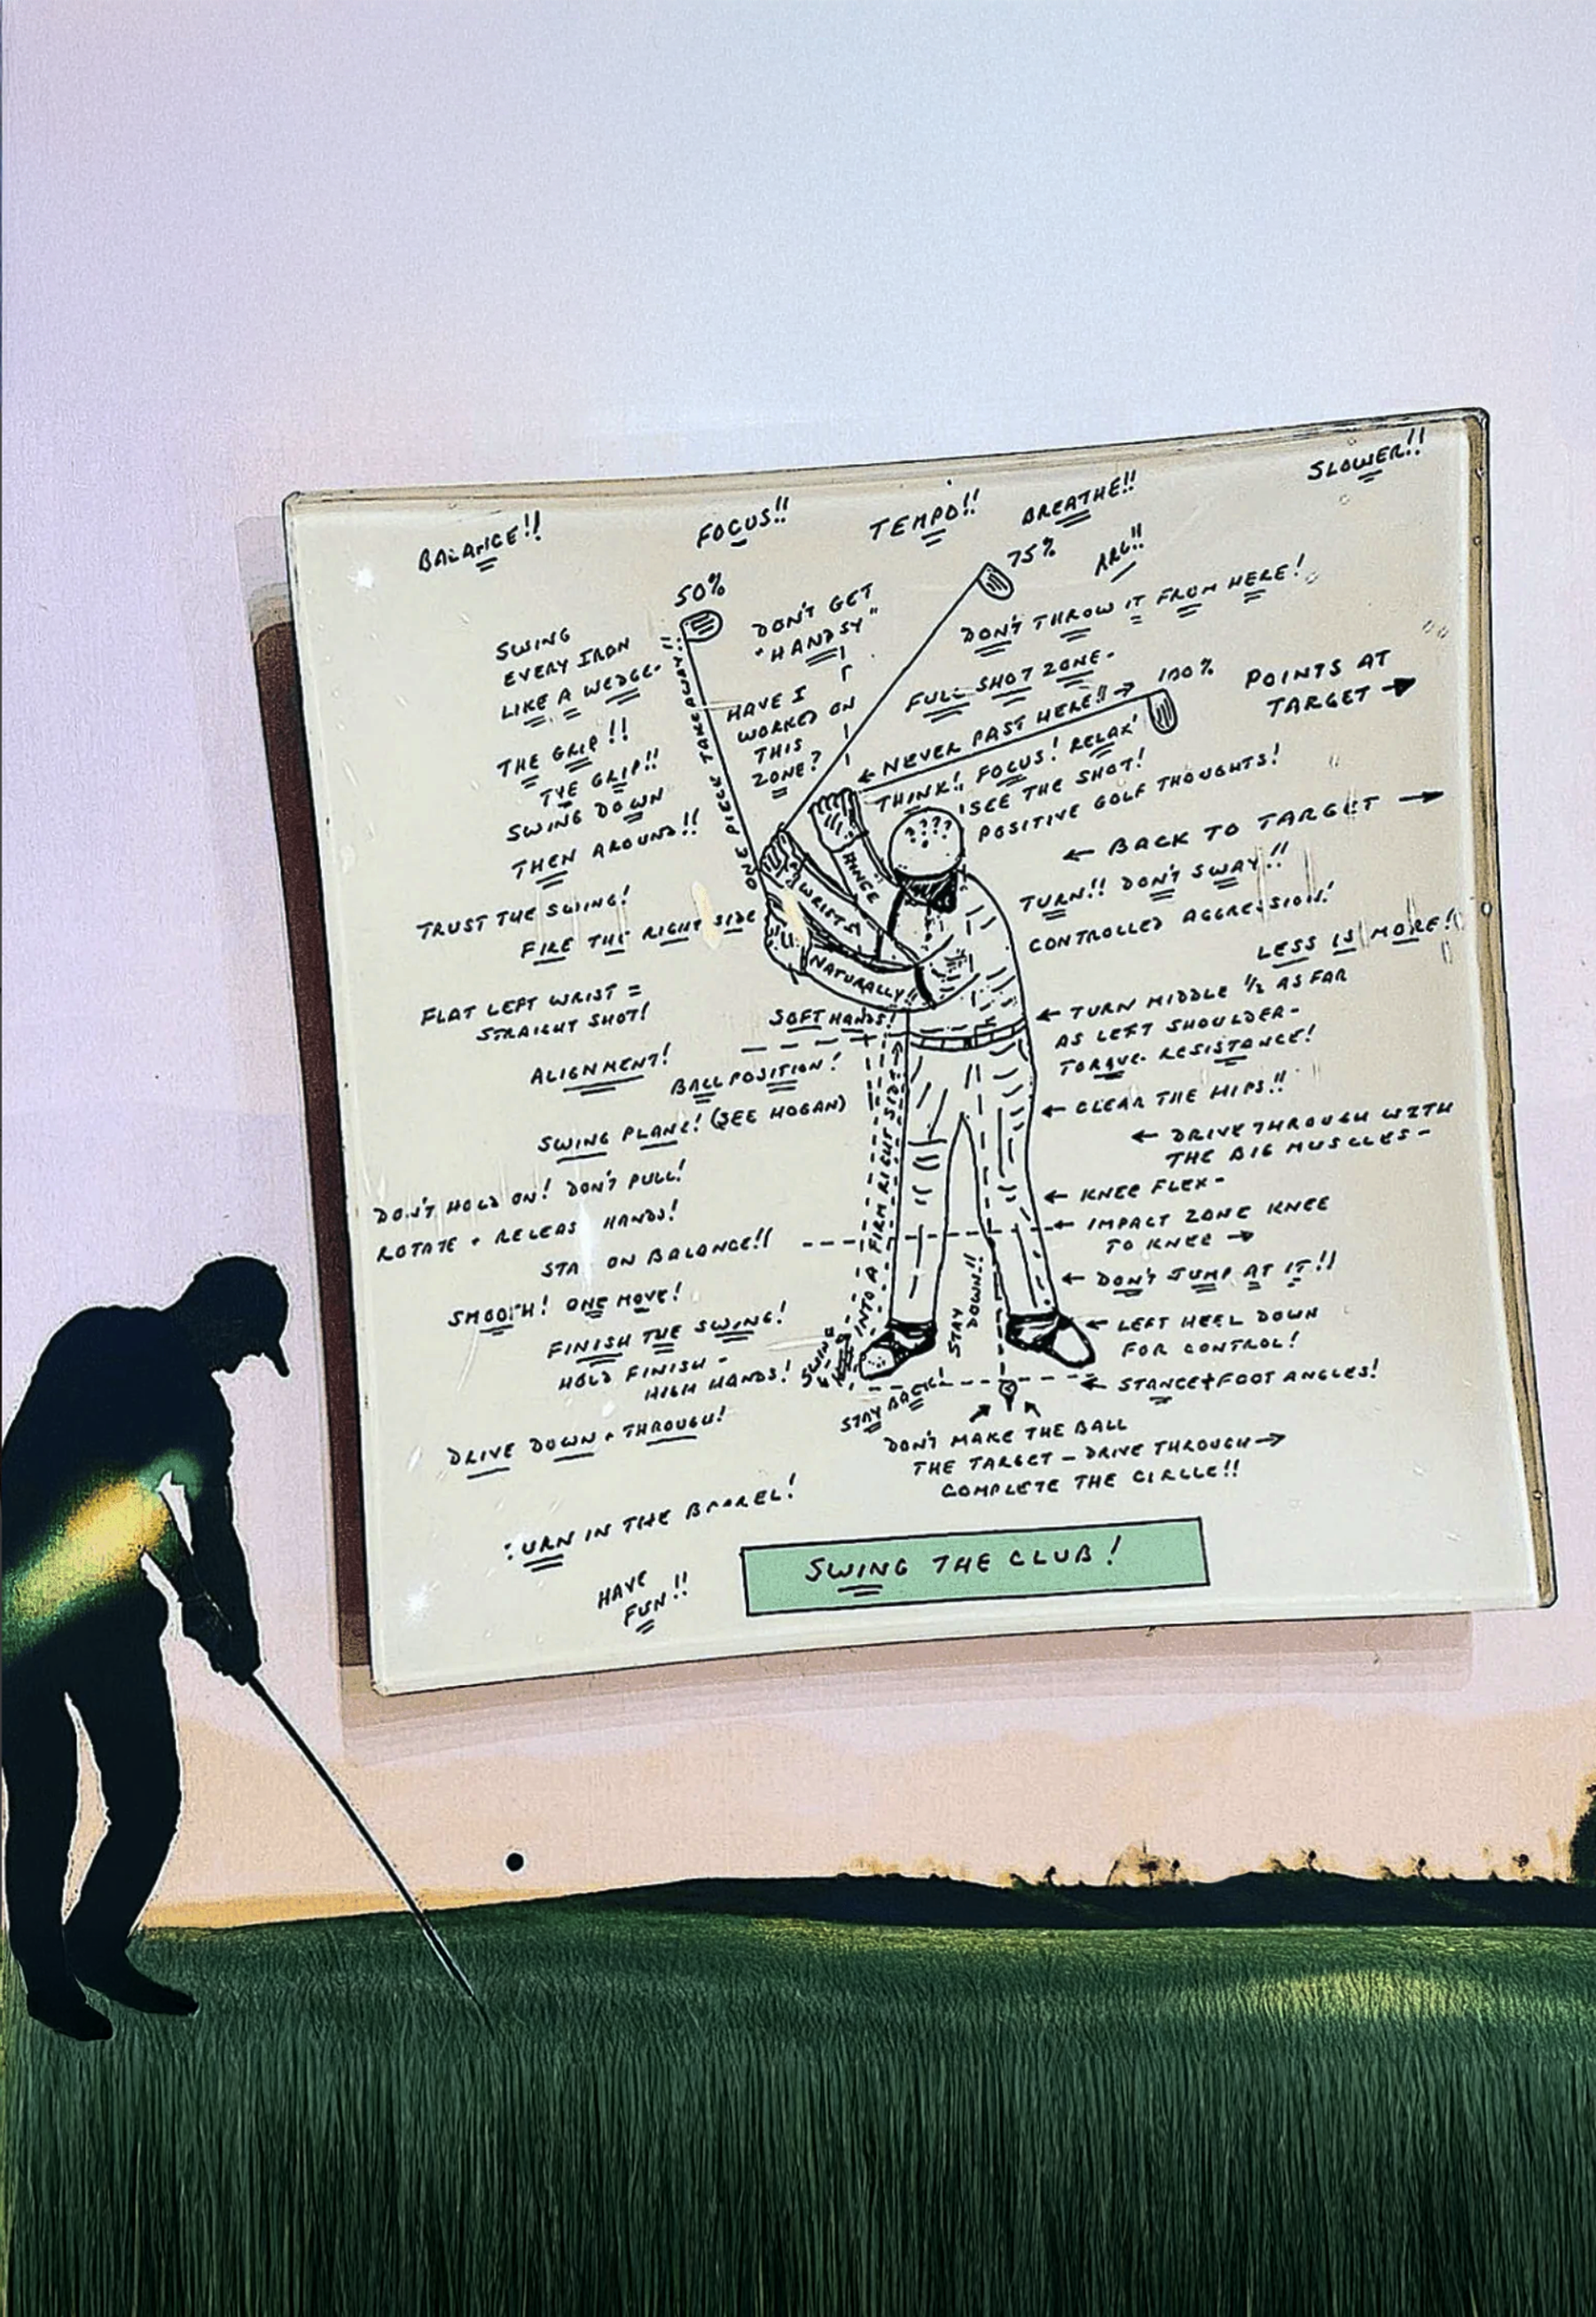 BALANCE!!
FOCUS!!
TEMPO!!
BREATHE!!
SLOWER!!
50%
75%
ARC!!
DON'T GET
"HANDSY"
DON'T THROW IT FROM HERE!
SWING
EVERY IRON
LIKE A WEDGE-
FULL SHOT ZONE-
100%
POINTS AT
TARGET →
ONE PIECE TAKEAWAY!!
HAVE I
WORKED ON
THIS
ZONE?
← NEVER PAST HERE!! →
THE GRIP!!
THE GRIP!!
SWING DOWN
THEN AROUND!!
THINK!! FOCUS! RELAX!
SEE THE SHOT!
POSITIVE GOLF THOUGHTS!
????
← BACK TO TARGET →
HINGE
WRISTS
NATURALLY!!
TURN!! DON'T SWAY!!
CONTROLLED AGGRESSION!
LESS IS MORE!!
TRUST THE SWING!
FIRE THE RIGHT SIDE
FLAT LEFT WRIST =
STRAIGHT SHOT!
SOFT HANDS!
← TURN MIDDLE 1/2 AS FAR
AS LEFT SHOULDER-
TORQUE- RESISTANCE!
ALIGNMENT!
BALL POSITION!
← CLEAR THE HIPS!!
SWING PLANE! (SEE HOGAN)
← DRIVE THROUGH WITH
THE BIG MUSCLES-
DON'T HOLD ON! DON'T PULL!
ROTATE + RELEAS HANDS!
← KNEE FLEX-
← IMPACT ZONE KNEE
TO KNEE →
STA ON BALANCE!!
SWING INTO A FIRM RIGHT SIDE →
STAY
DOWN!!
← DON'T JUMP AT IT!!
SMOOTH! ONE MOVE!
← LEFT HEEL DOWN
FOR CONTROL!
FINISH THE SWING!
HOLD FINISH-
HIGH HANDS!
← STANCE + FOOT ANGLES!
STAY BACK!
DRIVE DOWN + THROUGH!
DON'T MAKE THE BALL
THE TARGET - DRIVE THROUGH →
COMPLETE THE CIRCLE!!
TURN IN THE BARREL!
HAVE
FUN!!
SWING THE CLUB!